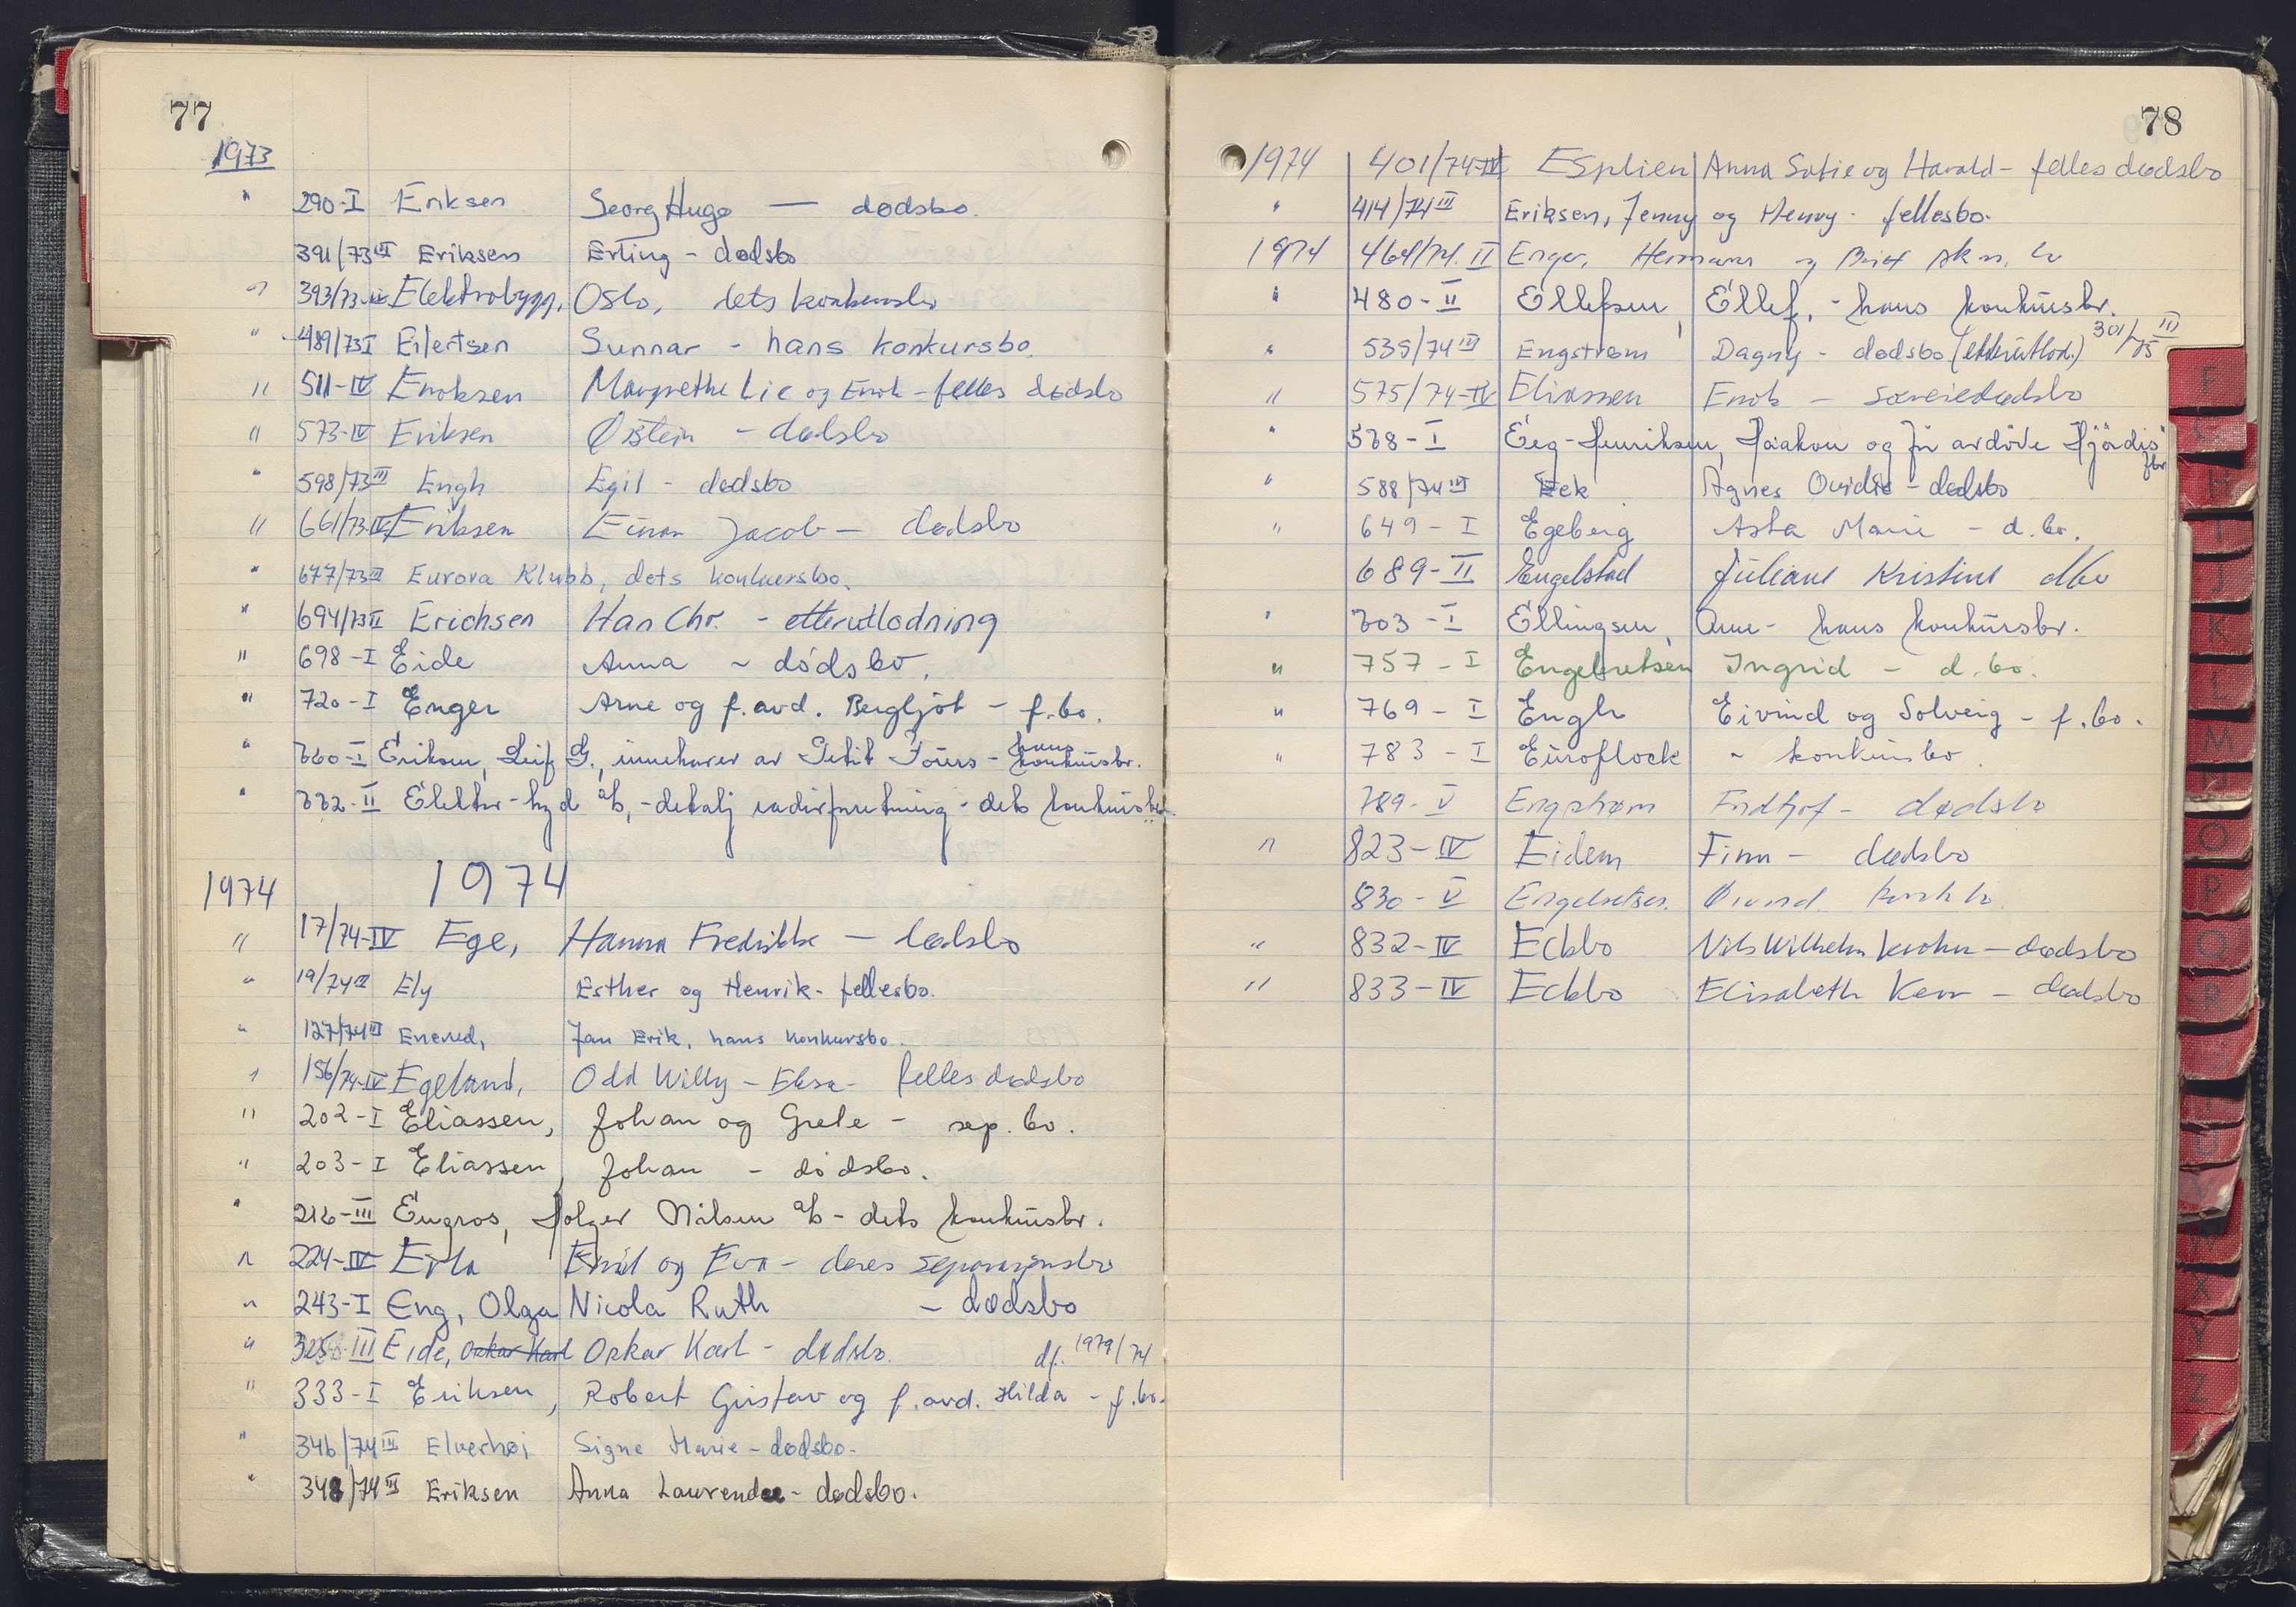 77
1973
" 290-I Eriksen Georg Hugo — dødsbo.
391/73 III Eriksen Erling - dødsbo
" 393/73 Elektrobygg, Oslo, dets konkursbo
" 489/73 I Eilertsen Gunnar - hans konkursbo.
" 511-IV Enoksen Margrethe Lie og Enok - felles dødsbo
" 573-IV Eriksen Øistein - dødsbo
" 598/73 III Engh Egil - dødsbo
" 661/73-IV Eriksen Einar Jacob - dødsbo
" 677/73 III Eurova Klubb, dets konkursbo.
" 694/73 II Erichsen Han Chr. - etterutlodning
" 698-I Eide Anna - dødsbo.
" 720-I Enger Arne og f. avd. Bergljot - f.bo.
" 760-I Eriksen, Leif G., innehaver av Petit Tours - hans konkursbo.
" 772-II Elektro-hyd a/s, - detalj radioforretning - dets konkursbo
1974 1974
" 17/74-IV Ege, Hanna Fredrikke — dødsbo
" 19/74 III Ely Esther og Henrik - fellesbo.
" 127/74 III Enerud, Jan Erik, hans konkursbo.
" 156/74-IV Egeland, Odd Willy - Elsa - felles dødsbo
" 202-I Eliassen, Johan og Grete - sep. bo.
" 203-I Eliassen, Johan - dødsbo.
" 216-III Engros, Holger Nilsen a/s - dets konkursbo.
" 224-IV Emil og Eva - deres separasjonsbo
" 243-I Eng, Olga Nicola Ruth - dødsbo
" 325-III Eide, Oskar Karl Oskar Karl - dødsbo. df. 1979/74
" 333-I Eriksen, Robert Gustav og f. avd. Hilda - f.bo.
" 346/74 III Elverhøi Signe Marie - dødsbo.
" 348/74 III Eriksen Anna - dødsbo.
78
1974 401/74-IV Esplien Anna Sofie og Harald - felles dødsbo
" 414/74 III Eriksen, Jenny og Henry - fellesbo.
1974 464/74. II Enger, Hermann og
" 480-II Ellefsen, Ellef, - hans konkursbo.
" 535/74 III Engstrøm Dagny - dødsbo (etterutlod.) 301/75 III
" 575/74-IV Eliassen Enok - særeiedødsbo
" 578-I Eeg-Henriksen, Haakon og fru avdøde Hjördis fbo
" 588/74 III Eek Agnes Ovidie - dødsbo
" 649-I Egeberg Asta Marie - d.bo.
689-II Engelstad Juliane Kristine dbo
" 703-I Ellingsen, Arne - hans konkursbo.
" 757-I Engebretsen Ingrid - d.bo.
" 769-I Engh Eivind og Solveig - f.bo.
" 783-I Euroflock - konkursbo.
789-V Engstrøm Fridtjof - dødsbo
" 823-IV Eidem Finn - dødsbo
830-V Engebretsen. Øivind. konkbo.
" 832-IV Eckbo Nils Wilhelm Krohn - dødsbo
" 833-IV Eckbo Elisabeth Kerr - dødsbo
F
G
H
I
J
K
L
M
N
O
P
Q
R
S
T
U
V
W
X
Y
Z